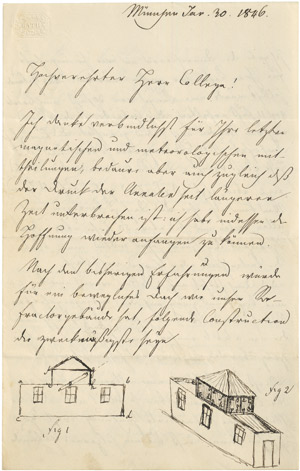 München Jan. 30. 1846.
Hochverehrter Herr College!
Ich danke verbindlichst für Ihre letzten
magnetischen und meteorologischen Mit-
theilungen, bedaure aber auch zugleich daß
der Druck der Annalen seit längerer
Zeit unterbrochen ist: ich habe indessen die
Hoffnung wieder anfangen zu können
Nach den bisherigen Erfahrungen würde
für ein bewegliches Dach wie unser Re-
fractorgebäude hat, folgende Construction
die zweckmäßigste seyn
fig 1
fig 2
a
b